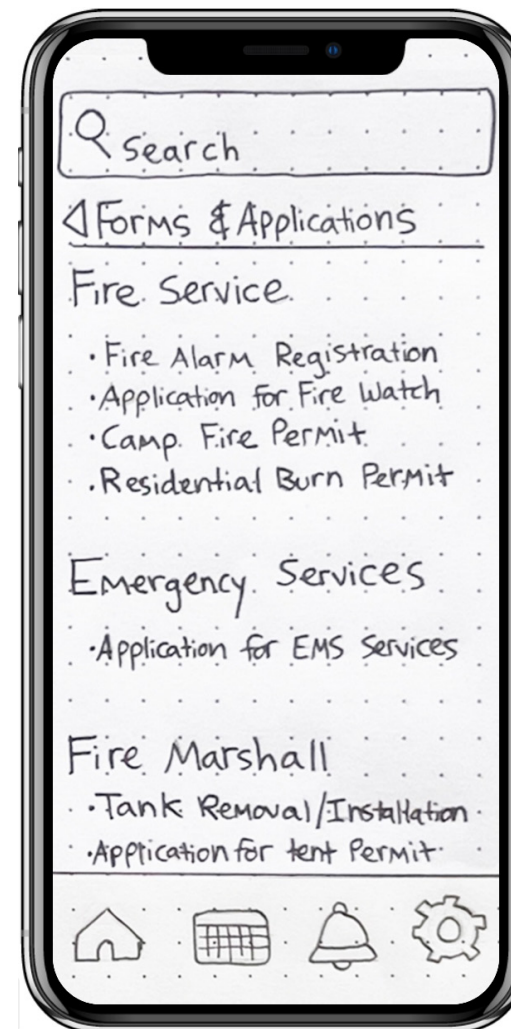 Search
Forms & Applications
Fire Service
• Fire Alarm Registration
• Application for Fire Watch
• Camp Fire Permit
• Residential Burn Permit
Emergency Services
• Application for EMS Services
Fire Marshall
• Tank Removal/Installation
• Application for tent Permit